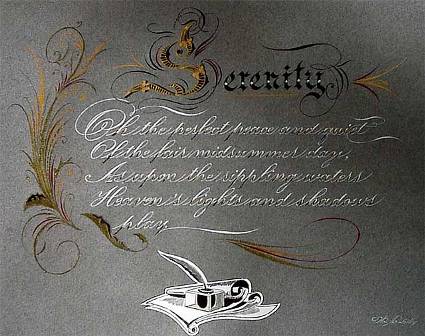 Serenity
Oh the perfect peace and quiet
Of the fair midsummer day,
As upon the rippling waters
Heaven's lights and shadows
play